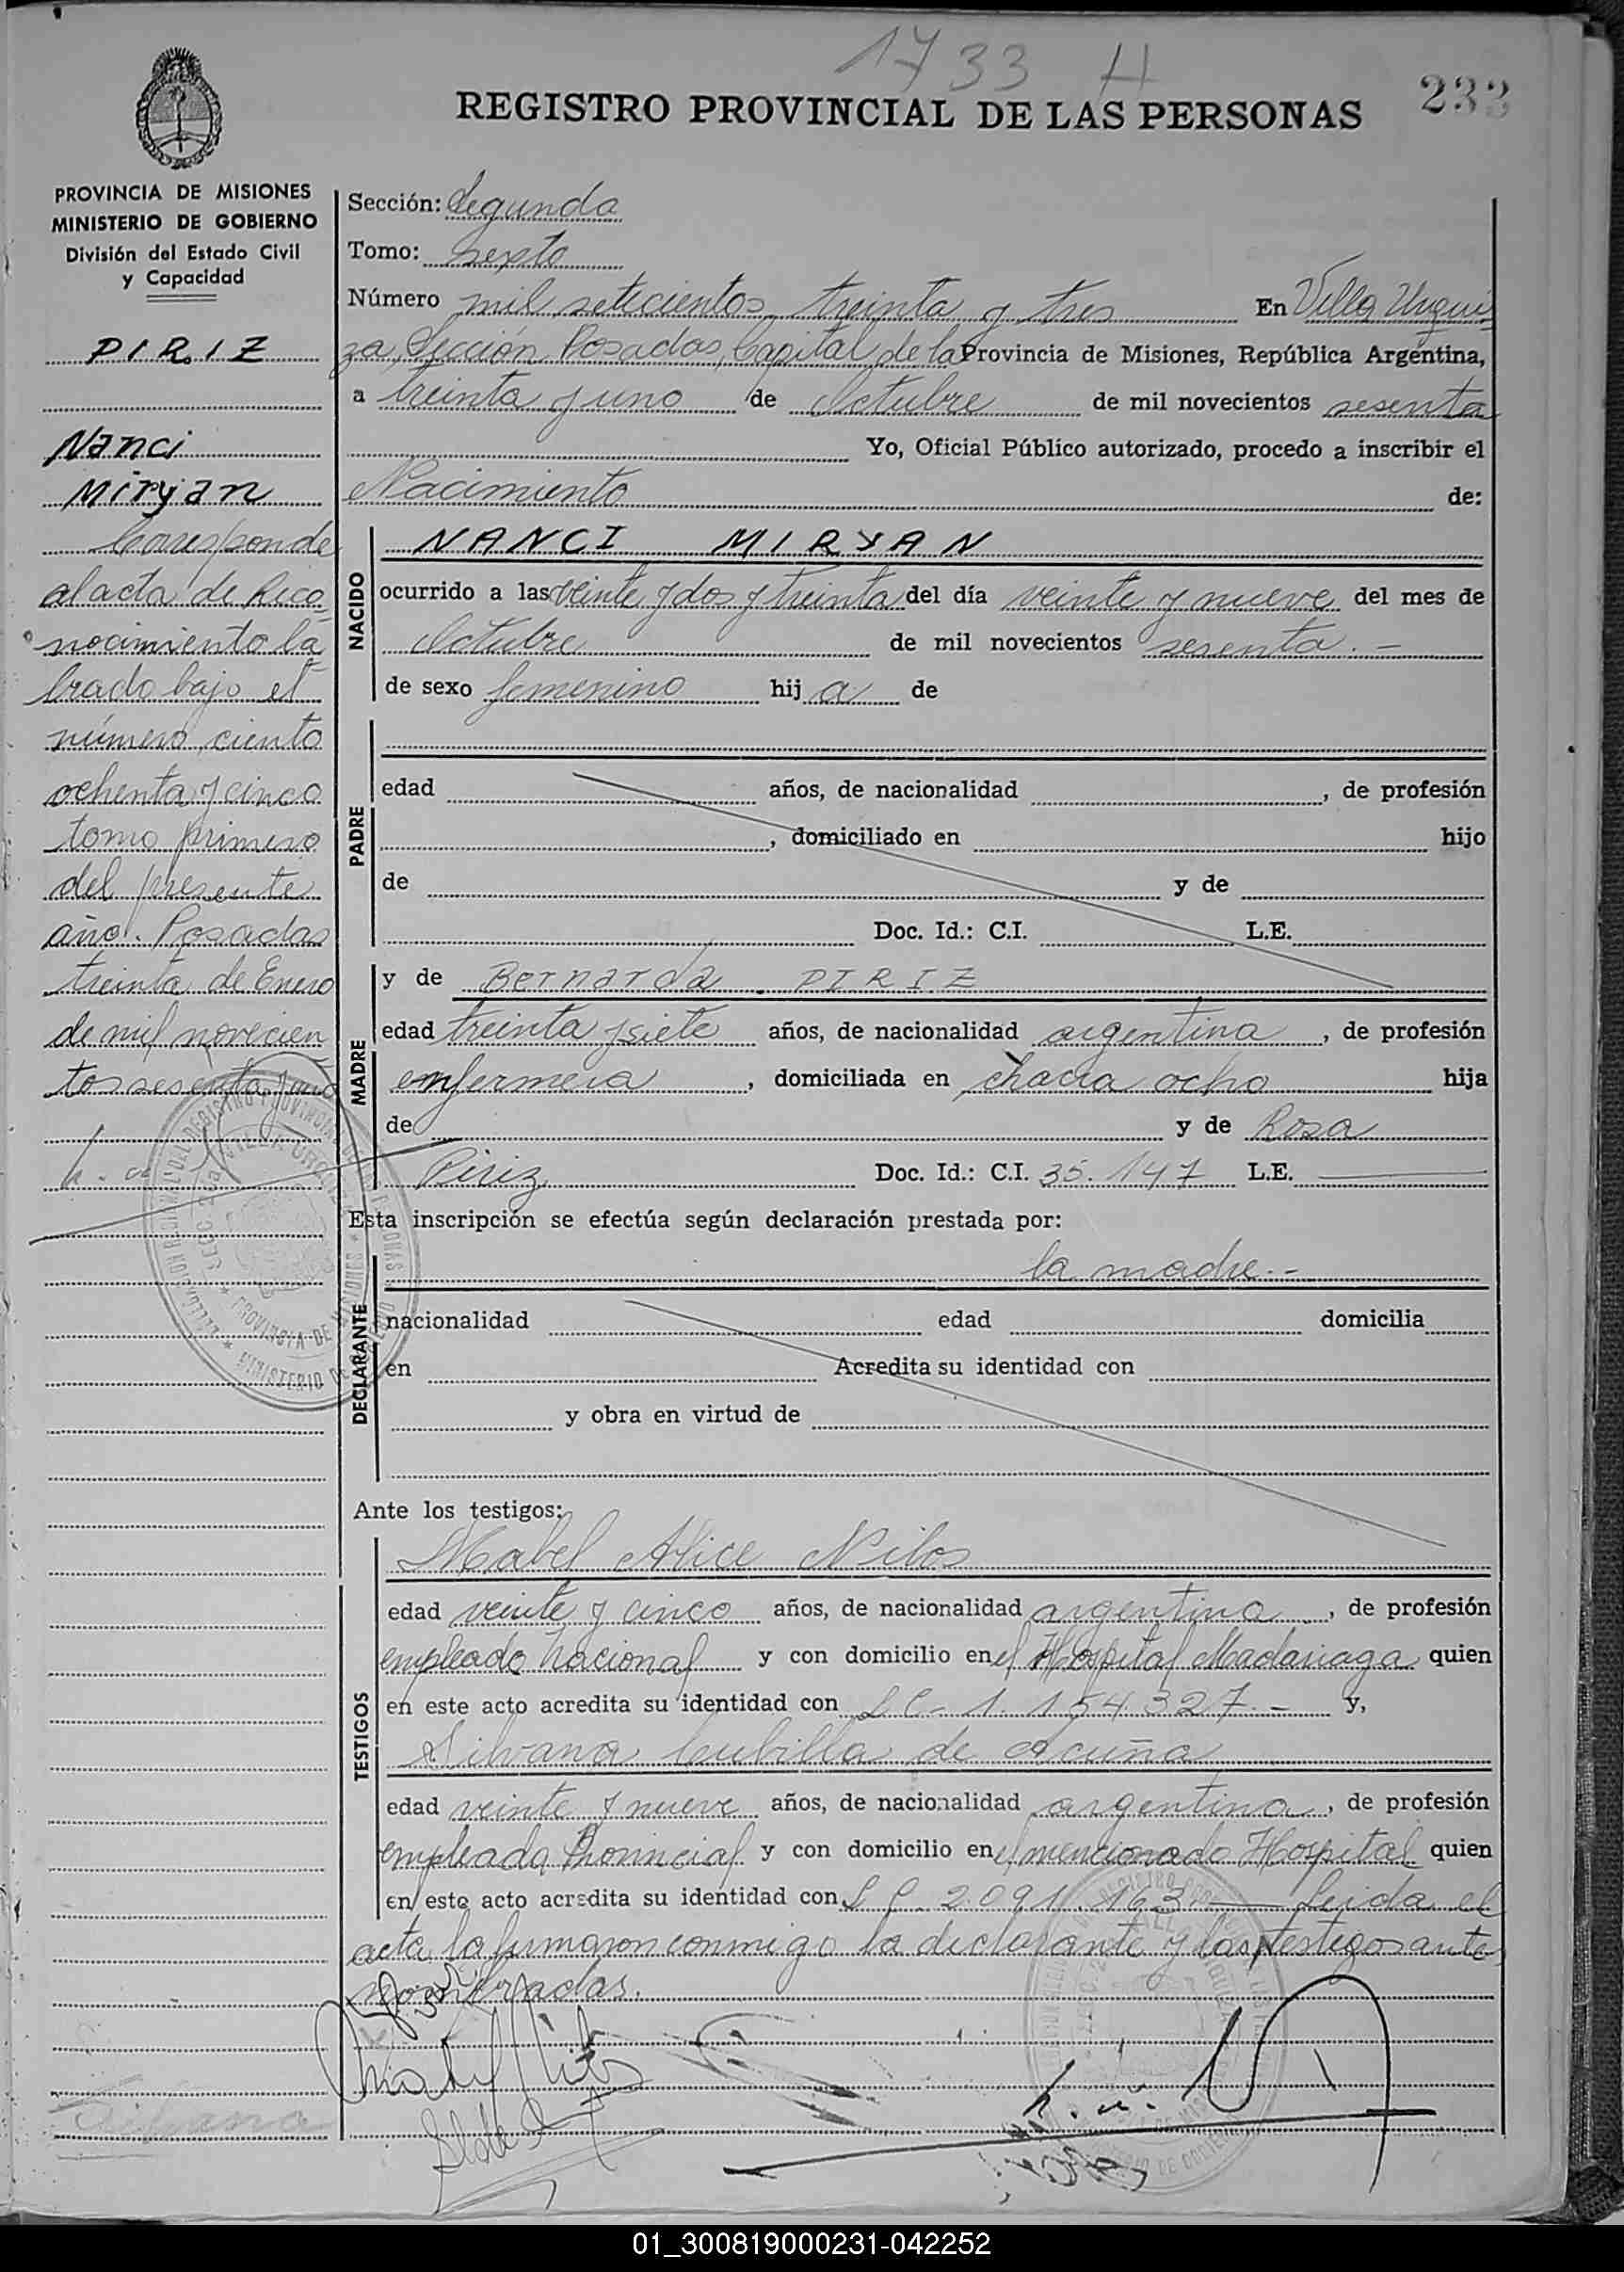 1733 H
REGISTRO PROVINCIAL DE LAS PERSONAS
232
PROVINCIA DE MISIONES
MINISTERIO DE GOBIERNO
División del Estado Civil
y Capacidad
PIRIZ
Nanci
Miryan
Corresponde
al acta de Reco-
nocimiento la-
brado bajo el
número ciento
ochenta y cinco
tomo primero
del presente
año. Posadas
treinta de Enero
de mil novecien
tos sesenta y uno
Sección: Segunda
Tomo: sexto
Número mil setecientos treinta y tres En Villa Urqui-
za, Sección Posadas, Capital de la Provincia de Misiones, República Argentina,
a treinta y uno de Octubre de mil novecientos sesenta
Yo, Oficial Público autorizado, procedo a inscribir el
Nacimiento de:
NACIDO
NANCI MIRYAN
ocurrido a las veinte y dos y treinta del día veinte y nueve del mes de
Octubre de mil novecientos sesenta.-
de sexo femenino hija de
PADRE
edad años, de nacionalidad , de profesión
, domiciliado en hijo
de y de
Doc. Id.: C.I. L.E.
MADRE
y de Bernarda PIRIZ
edad treinta y siete años, de nacionalidad argentina, de profesión
enfermera, domiciliada en chacra ocho hija
de y de Rosa
Piriz Doc. Id.: C.I. 35.147 L.E.
Esta inscripción se efectúa según declaración prestada por:
DECLARANTE
la madre.-
nacionalidad edad domicilia
en Acredita su identidad con
y obra en virtud de
Ante los testigos:
TESTIGOS
Mabel Alice Nilos
edad veinte y cinco años, de nacionalidad argentina, de profesión
empleado nacional y con domicilio en el Hospital Madariaga quien
en este acto acredita su identidad con L C - 1.154.327.- y,
Silvana Cubilla de Acuña
edad veinte y nueve años, de nacionalidad argentina, de profesión
empleada Provincial y con domicilio en el mencionado Hospital quien
en este acto acredita su identidad con L C 2.091.163 Leida el
acta la firmaron conmigo la declarante y las testigos ante
nombradas.
Silvana
01_300819000231-042252